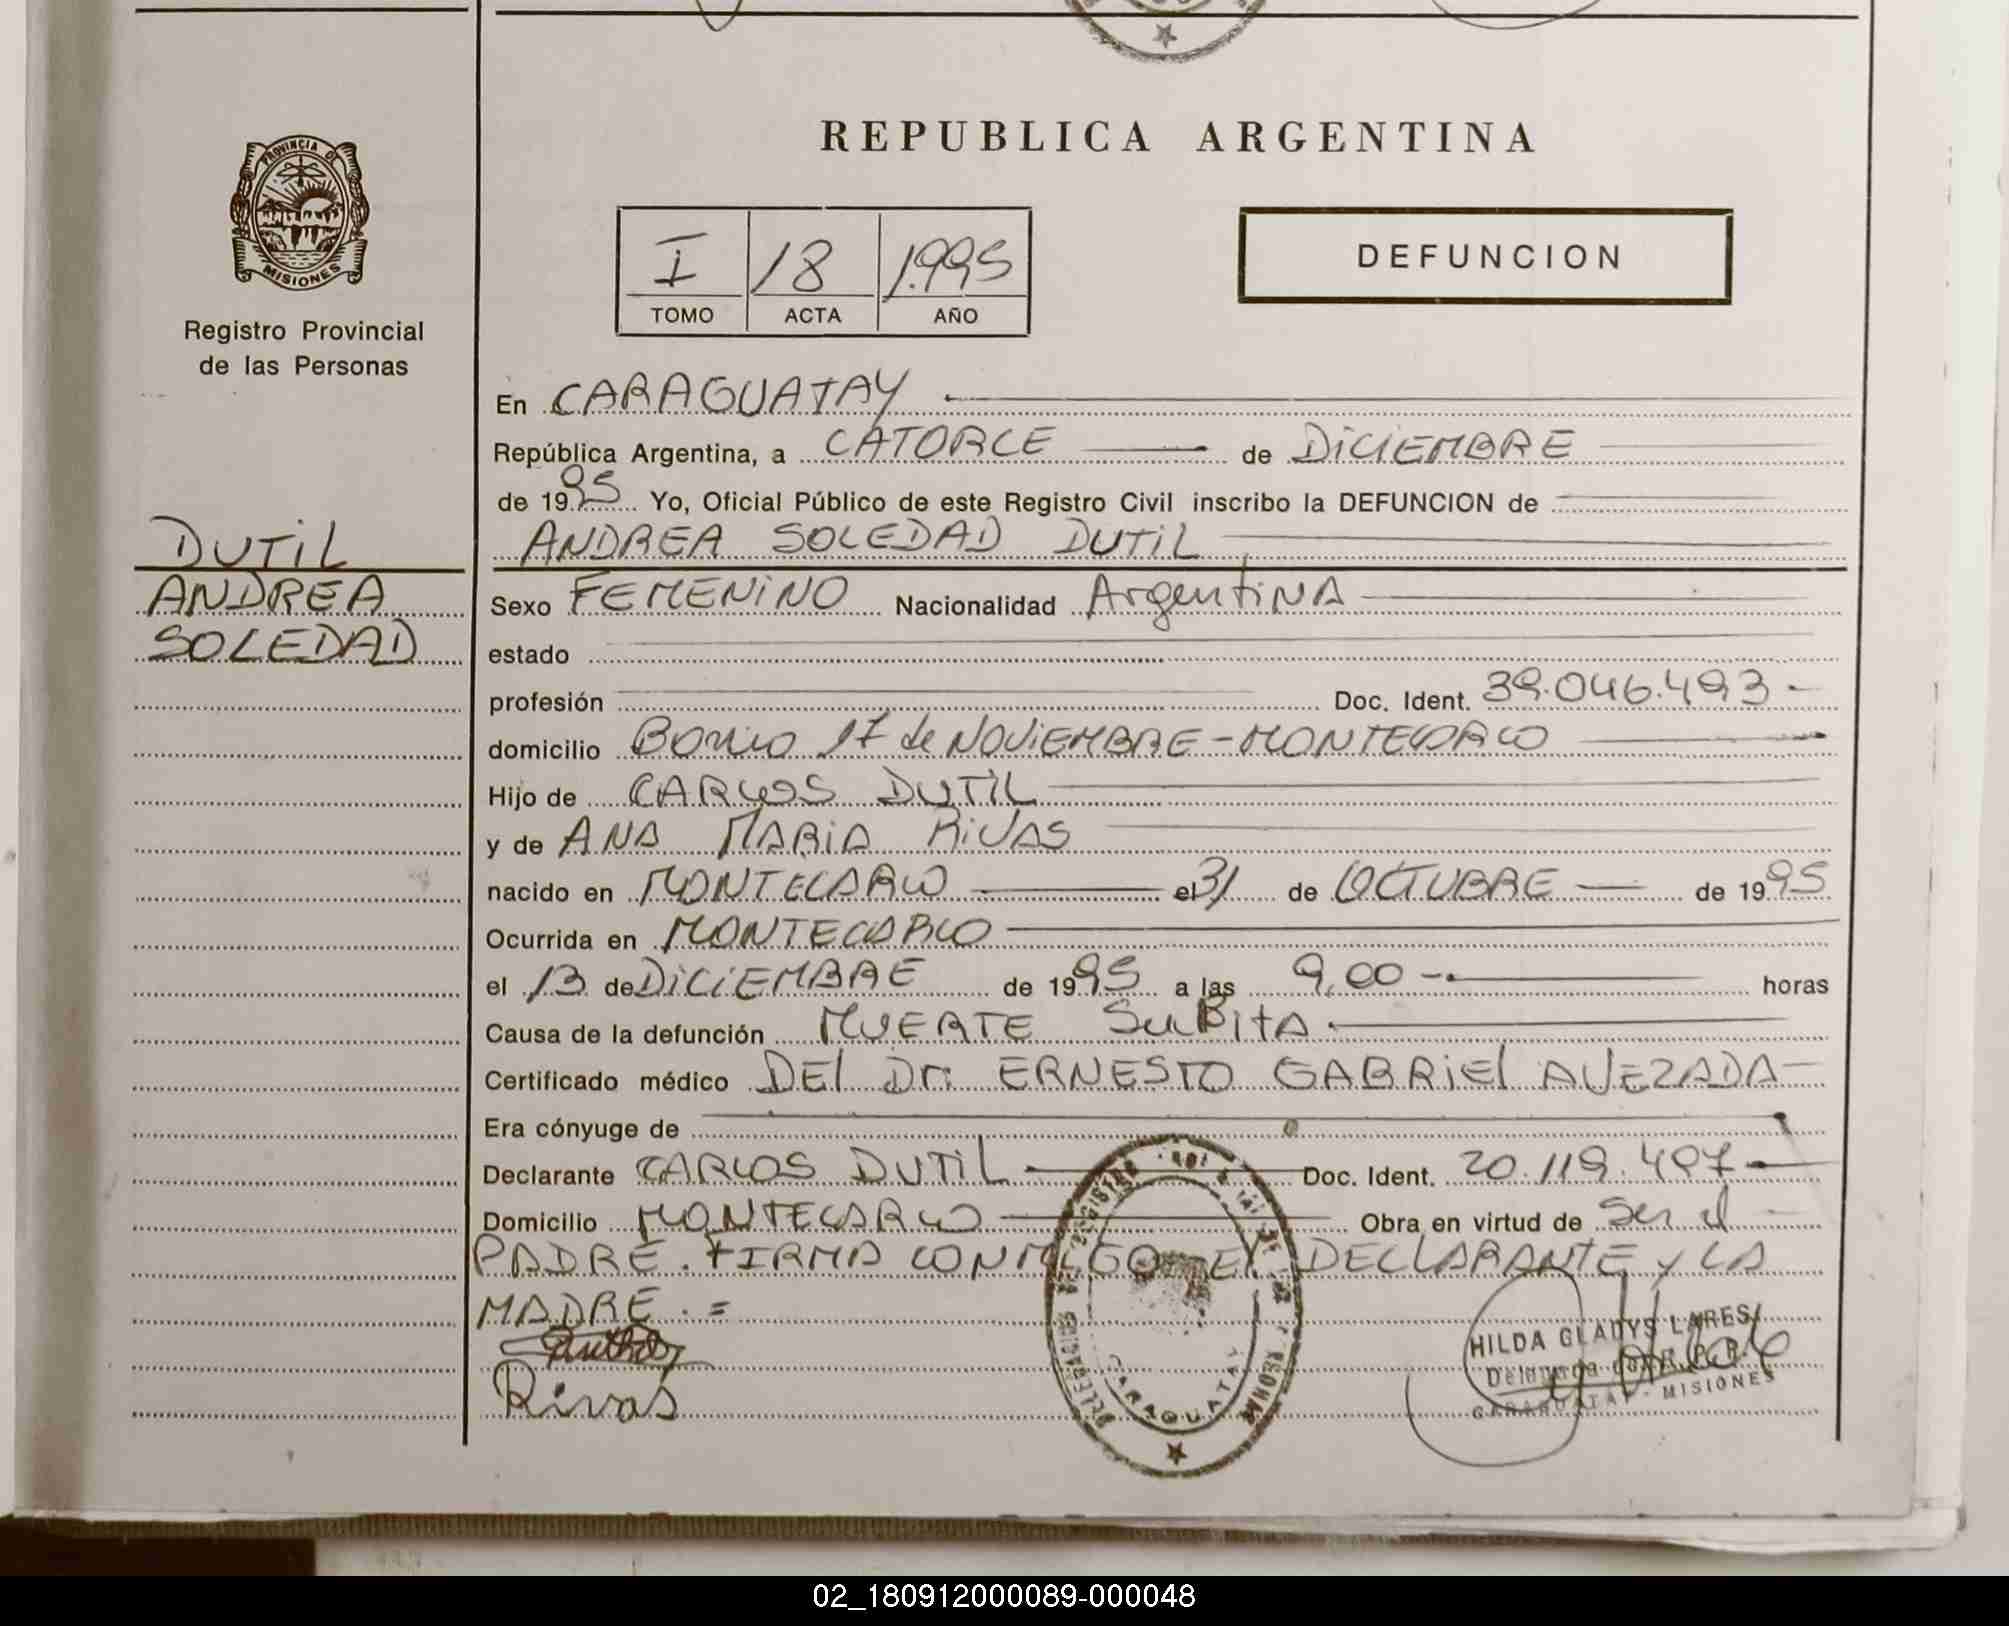 PROVINCIA DE
MISIONES
Registro Provincial
de las Personas
DUTIL
ANDREA
SOLEDAD
REPUBLICA ARGENTINA
I 18 1.995
TOMO ACTA AÑO
DEFUNCION
En CARAGUATAY
República Argentina, a CATORCE de DICIEMBRE
de 1995 Yo, Oficial Público de este Registro Civil inscribo la DEFUNCION de
ANDREA SOLEDAD DUTIL
Sexo FEMENINO Nacionalidad ArgentiNA
estado
profesión Doc. Ident. 39.046.493.-
domicilio Barrio 17 de NOVIEMBRE - MONTECARLO
Hijo de CARLOS DUTIL
y de ANA MARIA RIVAS
nacido en MONTECARLO el 31 de OCTUBRE de 1995
Ocurrida en MONTECARLO
el 13 de DICIEMBRE de 1995 a las 9,00 -. horas
Causa de la defunción MUERTE SuBitA.
Certificado médico DEl Dr: ERNESTO GABRIEl AVEZADA
Era cónyuge de
Declarante CARLOS DUTIL Doc. Ident. 20.119.497
Domicilio MONTECARLO Obra en virtud de Ser el
PADRE. FIRMA CONMIGO El DECLARANTE y LA
MADRE. =
Rivas
CARAGUATAY
HILDA GLADYS LARES
Delegada del R. P. P.
CARAGUATAY - MISIONES
02_180912000089-000048